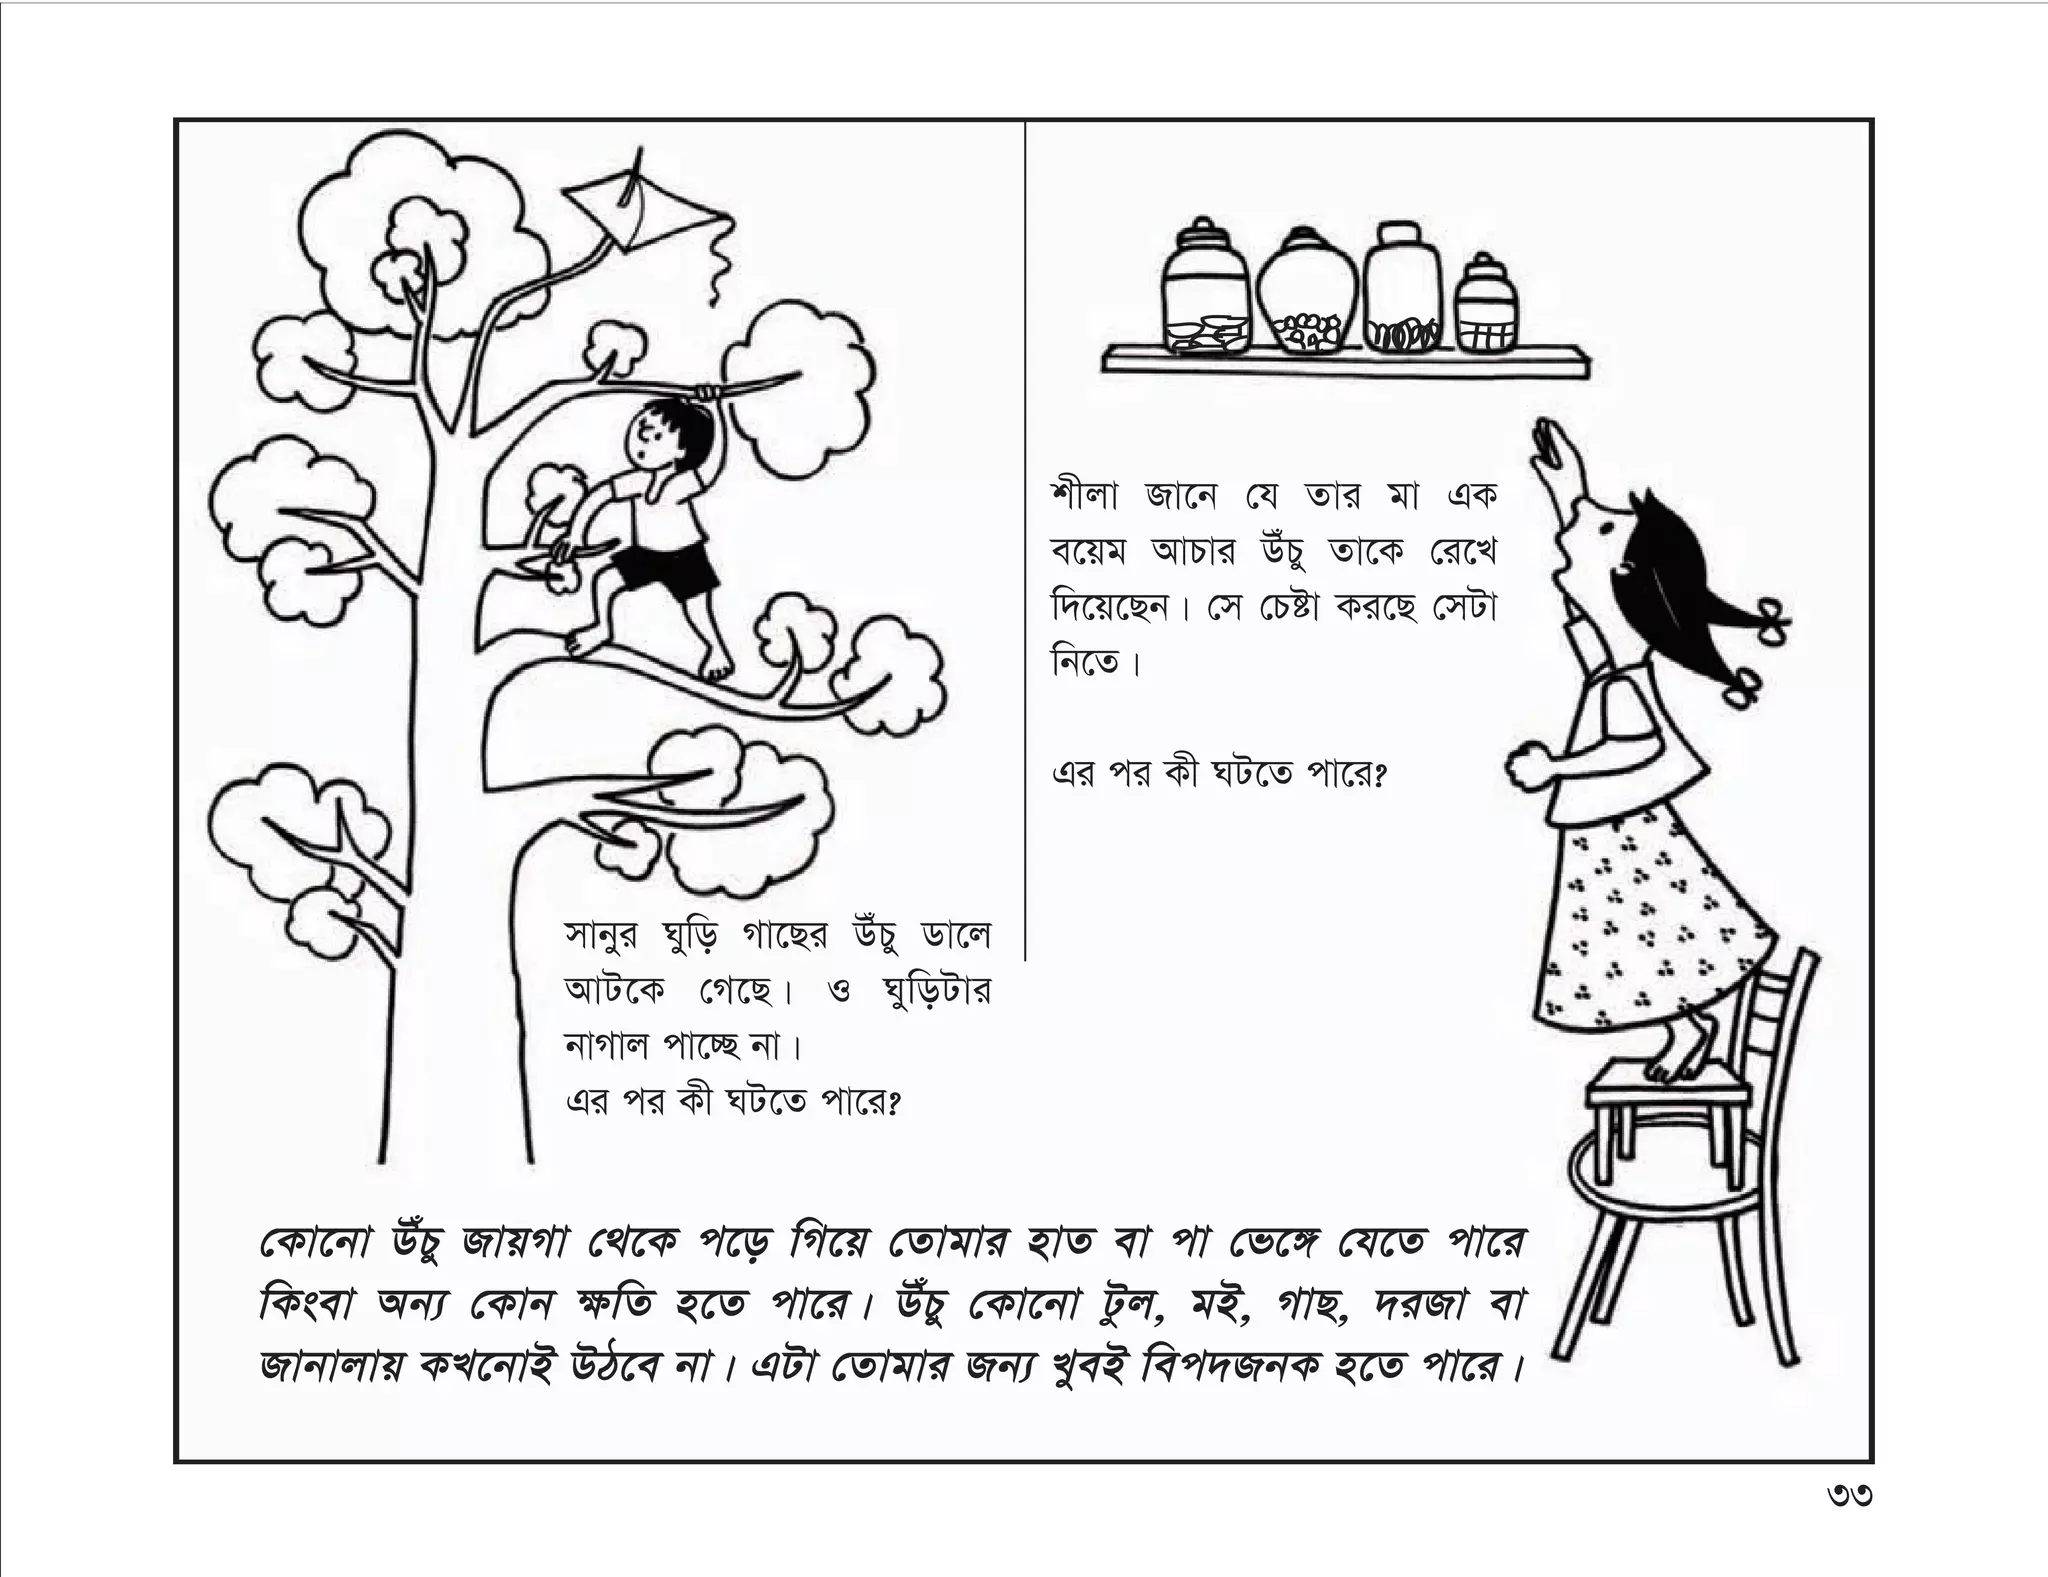 সানুর ঘুড়ি গাছের উঁচু ডালে
আটকে গেছে। ও ঘুড়িটার
নাগাল পাচ্ছে না।
এর পর কী ঘটতে পারে?
শীলা জানে যে তার মা এক
বয়েম আচার উঁচু তাকে রেখে
দিয়েছেন। সে চেষ্টা করছে সেটা
নিতে।
এর পর কী ঘটতে পারে?
কোনো উঁচু জায়গা থেকে পড়ে গিয়ে তোমার হাত বা পা ভেঙ্গে যেতে পারে
কিংবা অন্য কোন ক্ষতি হতে পারে। উঁচু কোনো টুল, মই, গাছ, দরজা বা
জানালায় কখনোই উঠবে না। এটা তোমার জন্য খুবই বিপদজনক হতে পারে।
৩৩